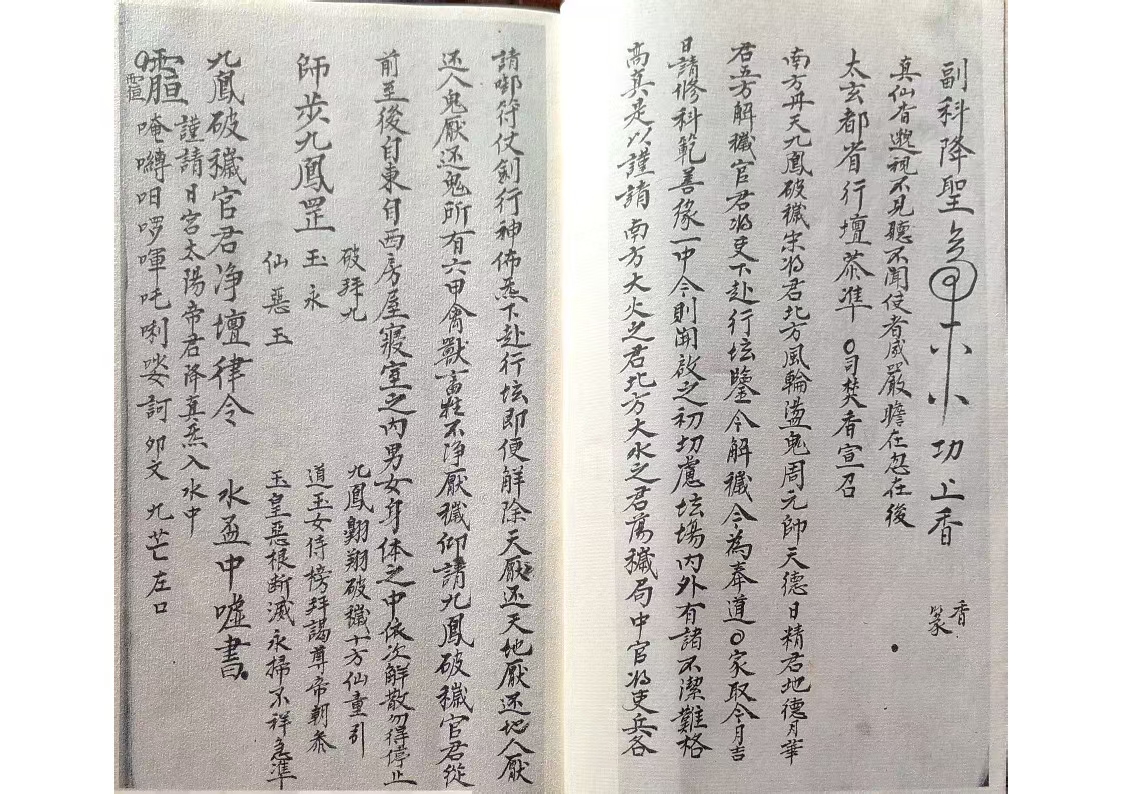 副科降聖 功上香 香篆
真仙杳邈視不見聽不聞使者威嚴瞻在忽在後
太玄都省行壇恭準 〇司焚香宣召
南方丹天九鳳破穢宋将君北方風輪盪鬼周元帥天德日精君地德月華
君五方解穢官君将吏下赴行坛鑒今解穢今為奉道〇家取今月吉
日請修科範善緣一中今則開啟之初切慮坛場内外有諸不潔難格
高真是以謹請南方大火之君北方大水之君蕩穢局中官将吏兵各
請啣符仗劍行神佈炁下赴行坛即便解除天厭还天地厭还地人厭
还人鬼厭还鬼所有六甲禽獸畜牲不淨厭穢仰請九鳳破穢官君從
前至後自東自西房屋寢室之内男女身体之中依次解散勿得停止
破拜九 九鳳翱翔破穢十方仙童引
師步九鳳罡 玉永 道玉女侍榜拜謁尊帝朝参
仙惡玉 玉皇惡根断滅永掃不祥急準
九鳳破穢官君净壇律令 水盂中噓書
謹請日宮太陽帝君降真炁入水中
唵嚩呾啰㖇吒唎娑訶 卯文 九芒左口